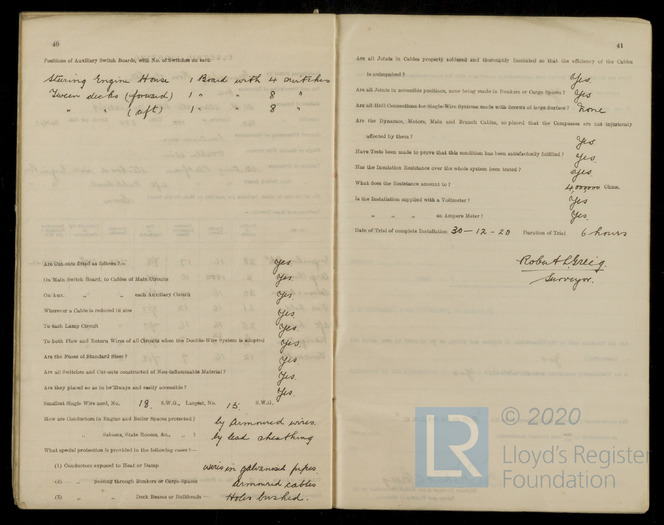 40
Positions of Auxiliary Switch Boards, with No. of Switches on each
Steering Engine House 1 Board with 4 switches
Tween decks (forward) 1 " " 8 "
" " (aft) 1 " " 8 "
Are Cut-outs fitted as follows?—
Yes
On Main Switch Board, to Cables of Main Circuits
Yes
On Aux. " " each Auxiliary Circuit
Yes
Wherever a Cable is reduced in size
Yes
To each Lamp Circuit
Yes.
To both Flow and Return Wires of all Circuits when the Double-Wire System is adopted
Yes.
Are the Fuses of Standard Sizes?
Yes.
Are all Switches and Cut-outs constructed of Non-inflammable Material?
Yes.
Are they placed so as to be always and easily accessible?
Yes.
Smallest Single Wire used, No. 18 S.W.G., Largest, No. 15 S.W.G.
How are Conductors in Engine and Boiler Spaces protected? by armoured wires.
" Saloons, State Rooms, &c., " ? by lead sheathing
What special protection is provided in the following cases?—
(1) Conductors exposed to Heat or Damp wires in galvanised pipes.
(2) " passing through Bunkers or Cargo Spaces armoured cables
(3) " " Deck Beams or Bulkheads Holes bushed.
41
Are all Joints in Cables properly soldered and thoroughly insulated so that the efficiency of the Cables
is unimpaired? Yes.
Are all Joints in accessible positions, none being made in Bunkers or Cargo Spaces? Yes
Are all Hull Connections for Single-Wire Systems made with Screws of large surface? none
Are the Dynamos, Motors, Main and Branch Cables, so placed that the Compasses are not injuriously
affected by them? Yes
Have Tests been made to prove that this condition has been satisfactorily fulfilled? Yes.
Has the Insulation Resistance over the whole system been tested? Yes.
What does the Resistance amount to? 4,000000 Ohms.
Is the Installation supplied with a Voltmeter? Yes
" " " an Ampere Meter? Yes.
Date of Trial of complete Installation 30-12-20 Duration of Trial 6 hours
Robert L. Greig.
Surveyor.
LR
© 2020
Lloyd's Register
Foundation